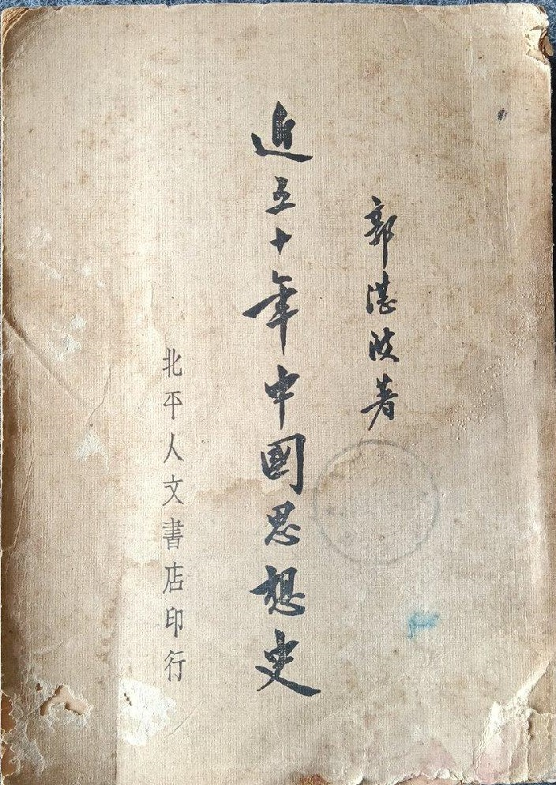 郭湛波著
近五十年中國思想史
北平人文書店印行